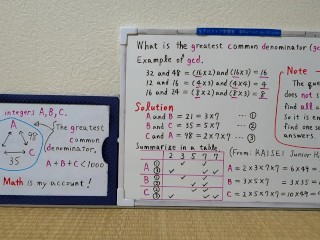 What is the greatest common denominator (gc
Example of gcd.
32 and 48 = (16×2) and (16×3) = 16
12 and 16 = (4×3) and (4×4) = 4
16 and 24 = (8×2) and (8×3) = 8
Note
The que
does not s
find all a
So it is en
find one se
answers.
Solution
A and B = 21 = 3×7 ①
B and C = 35 = 5×7 ②
C and A = 98 = 2×7×7 ③
Summarize in a table.
2 3 5 7 7
A ① ③
B ① ②
C ② ③
(From: KAISEI Junior H
A = 2×3×7×7 = 6×49 =
B = 3×5×7 = 3×35 =
C = 2×5×7×7 = 10×49 =
integers A, B, C.
A
98
C
35
The greatest
common
denominator,
A+B+C<1000
Math is my account!